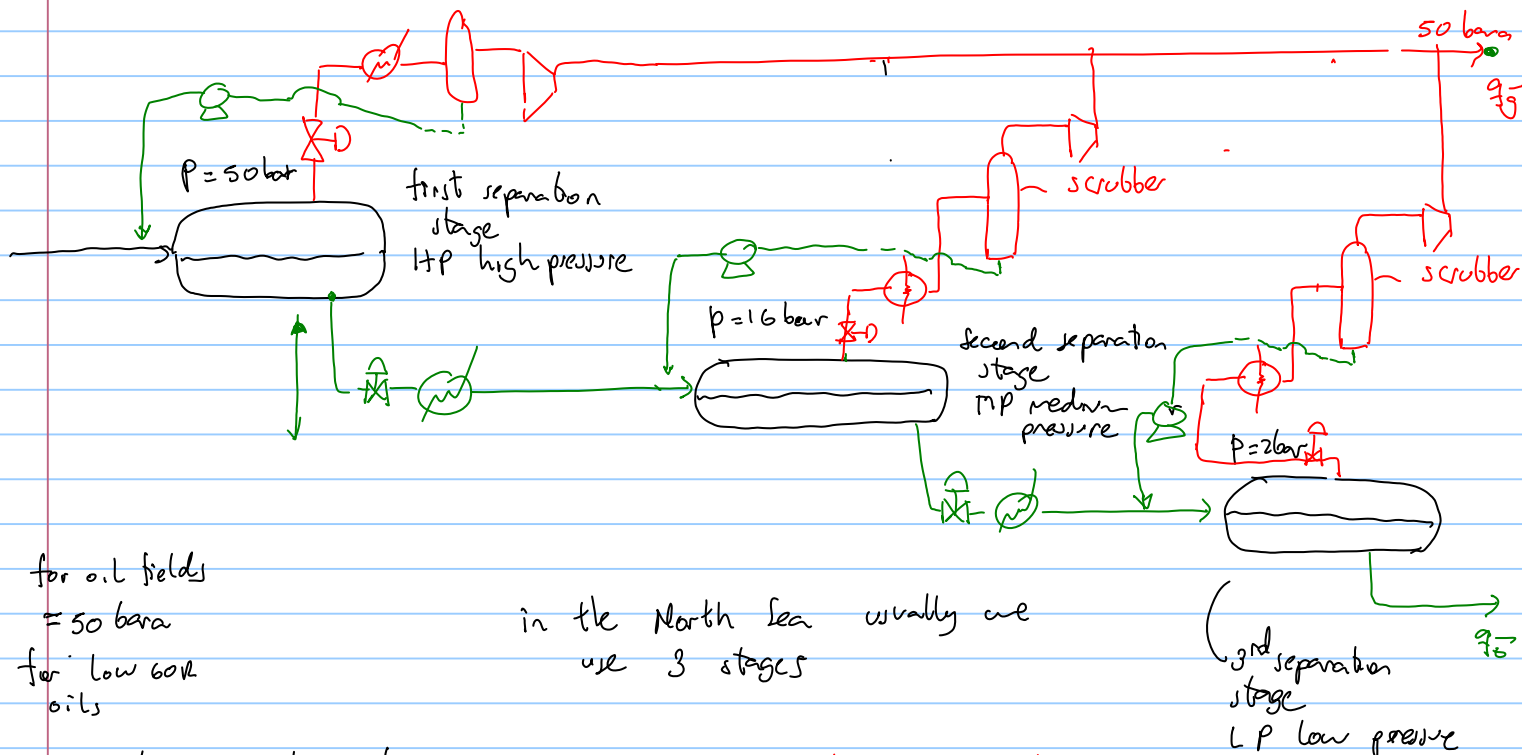 50 bara
qg̅
p = 50 bar
first separation
stage
HP high pressure
scrubber
scrubber
p = 16 bar
second separation
stage
MP medium
pressure
p = 2bar
for oil fields
= 50 bara
for low GOR
oils
in the North Sea usually we
use 3 stages
qo̅
3rd separation
stage
LP low pressure